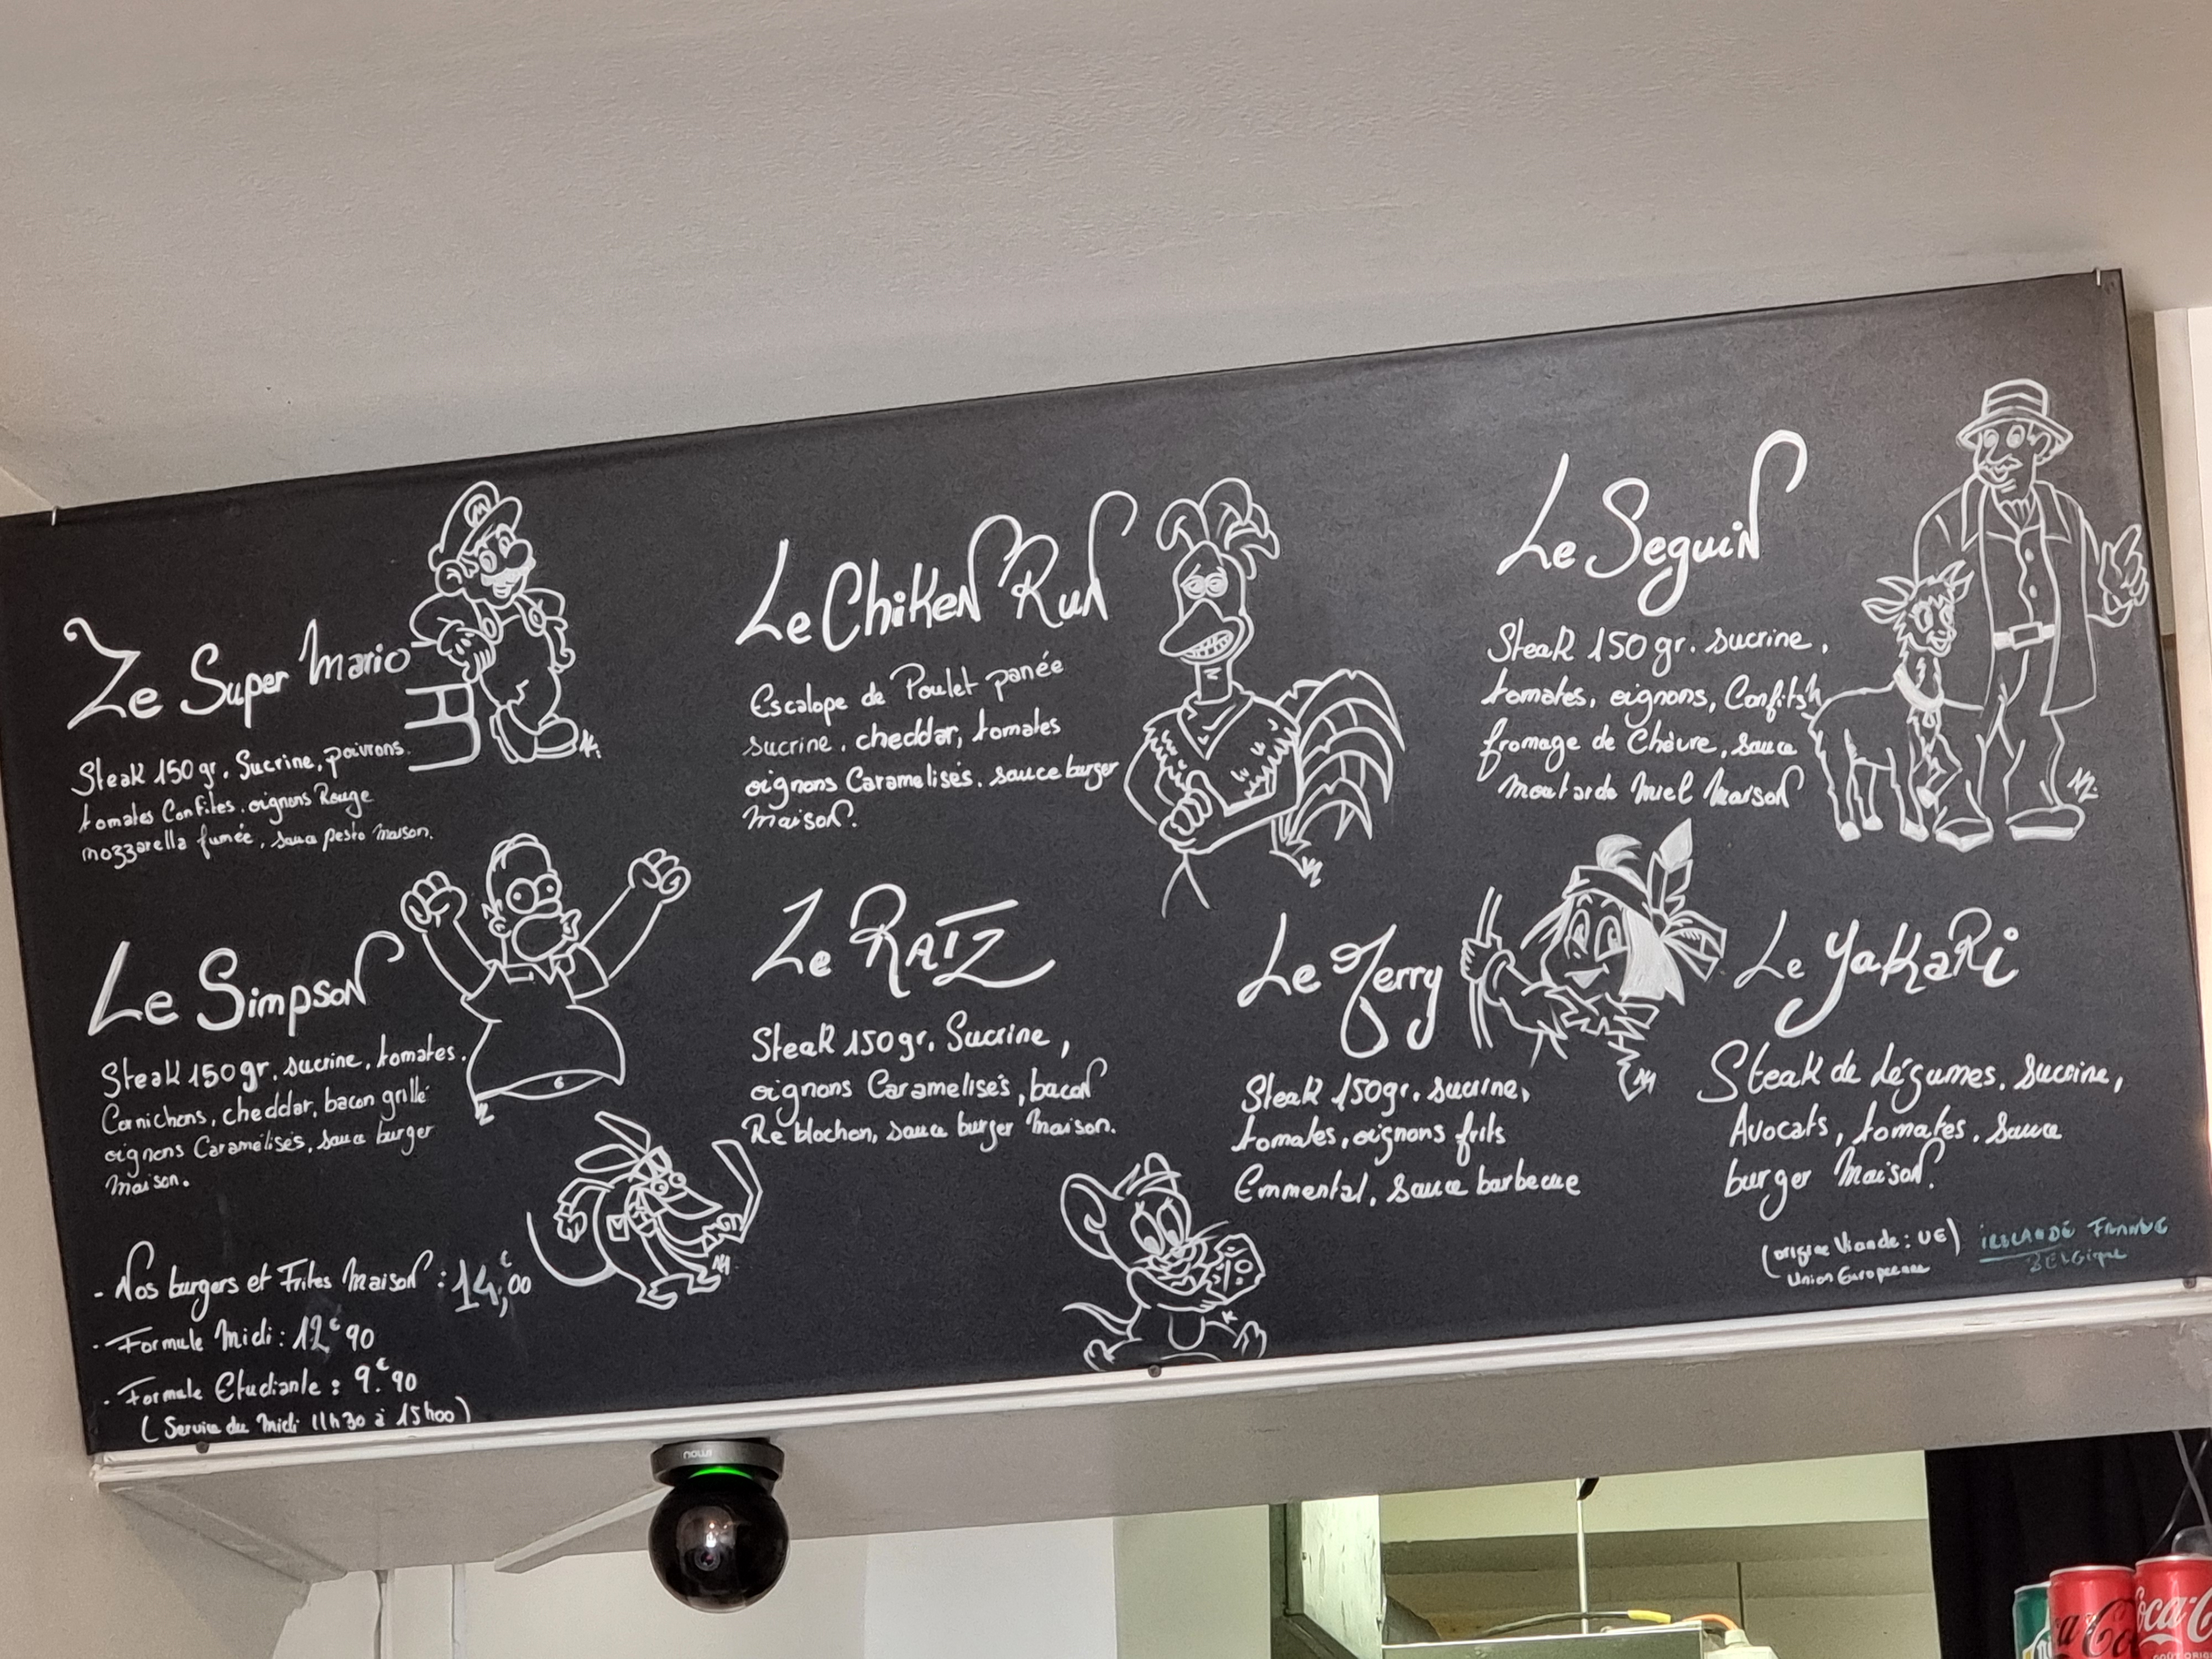 Ze Super Mario
Steak 150 gr. Sucrine, poivrons.
tomates Confites. oignons Rouge
mozzarella fumée, sauce pesto maison.
Le Chiken Run
Escalope de Poulet panée
sucrine. cheddar, tomates
oignons Caramelisés. sauce burger
maison.
Le Seguin
Steak 150 gr. sucrine.
tomates, oignons, Confits
fromage de Chèvre, sauce
moutarde Miel Maison
Le Simpson
Steak 150 gr. sucrine. tomates.
Cornichons, cheddar, bacon grillé
oignons Caramélisés, sauce burger
maison.
Ze RATZ
Steak 150gr. Sucrine,
oignons Caramelisés, bacon
Reblochon, sauce burger maison.
Le Jerry
Steak 150gr. sucrine,
tomates, oignons frits
Emmental, sauce barbecue
Le Yakari
Steak de légumes. sucrine,
Avocats, tomates. sauce
burger Maison.
(origine Viande: UE) IRLANDE FRANCE
Union Européenne BELGique
- Nos burgers et Frites Maison : 14,€00
- Formule Midi : 12€90
- Formule Etudiante : 9.€90
(Service du Midi 11h30 à 15h00)
Coca-C